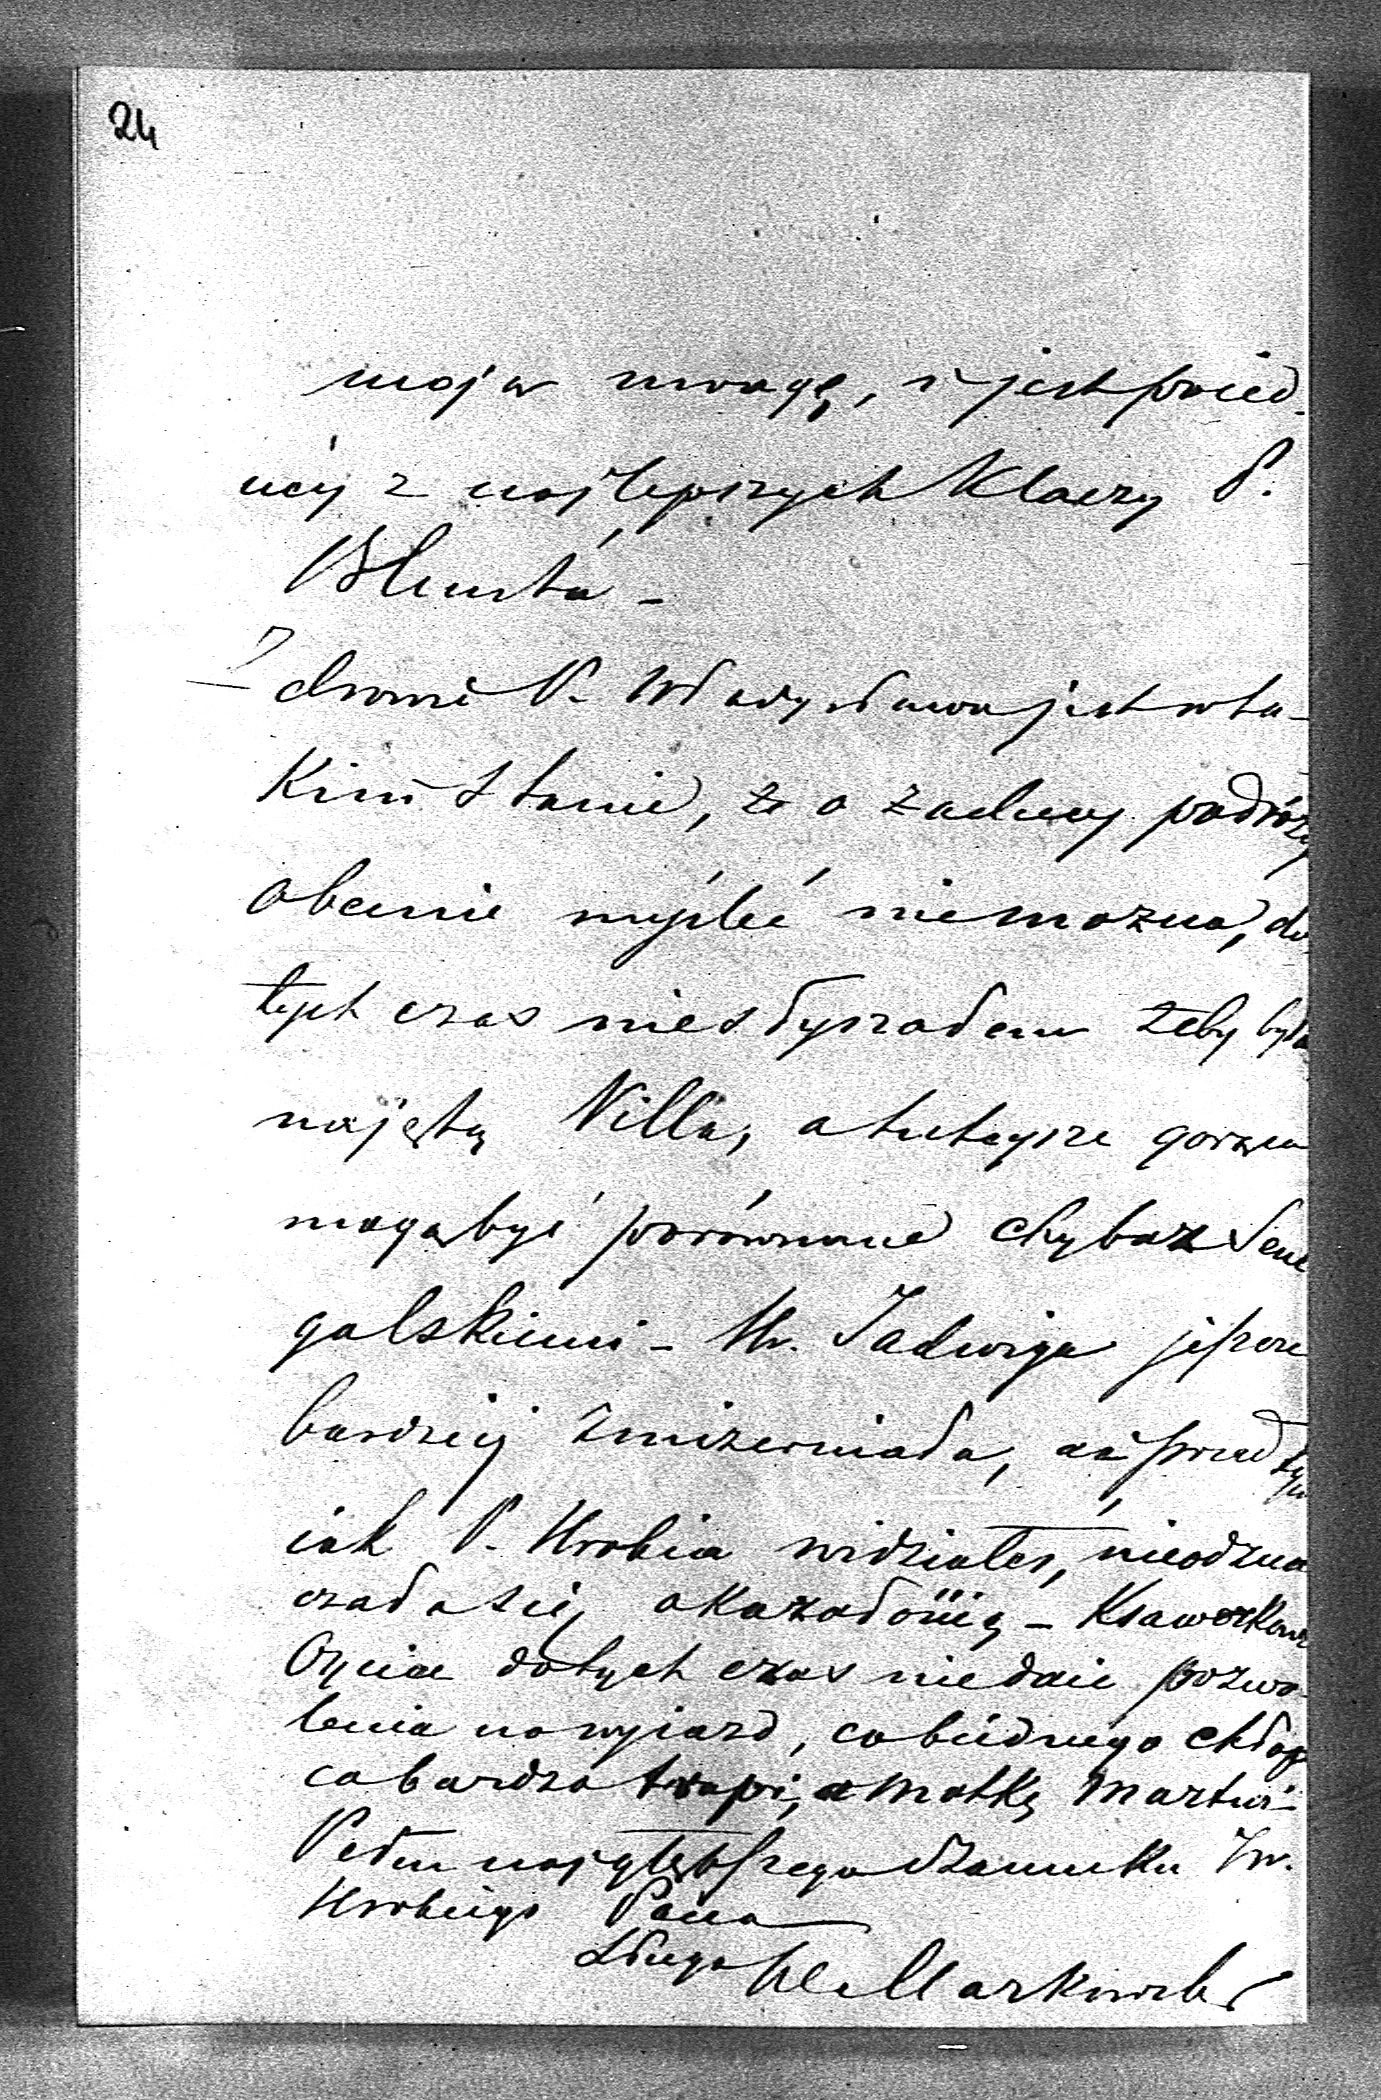 24
moją uwagę, i jest po jed-
néj z najlepszych Klaczy P.
Blunta –
Zdrowie P. Władysława jest w ta-
Kim Stanie, że o żadnéj podróży
obecnie myśléć niemożna, do
tych czas niesłyszałem żeby była
najętą Villa, a tutejsze gorąca
mogą być porównane chyba z Sene
galskiemi – Hr. Jadwiga jeszcze
bardziej zmizerniała, niż przed tym
jak P. Hrabia widziałeś, nieodzna
czała się okazałością – Ksawerkowi
Ojciec dotych czas nie daie pozwo-
lenia na wyjazd, co biédnego chłop
ca bardzo trapi, a Matkę Martwi –
Pełen najgłębszego szacunku JW.
Hrabiego Pana
Sługa W. Markowski